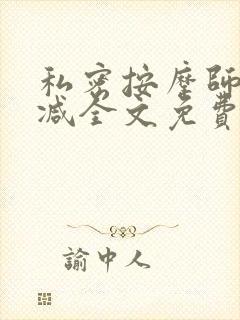 私密按摩師
減全文免費
諭中人